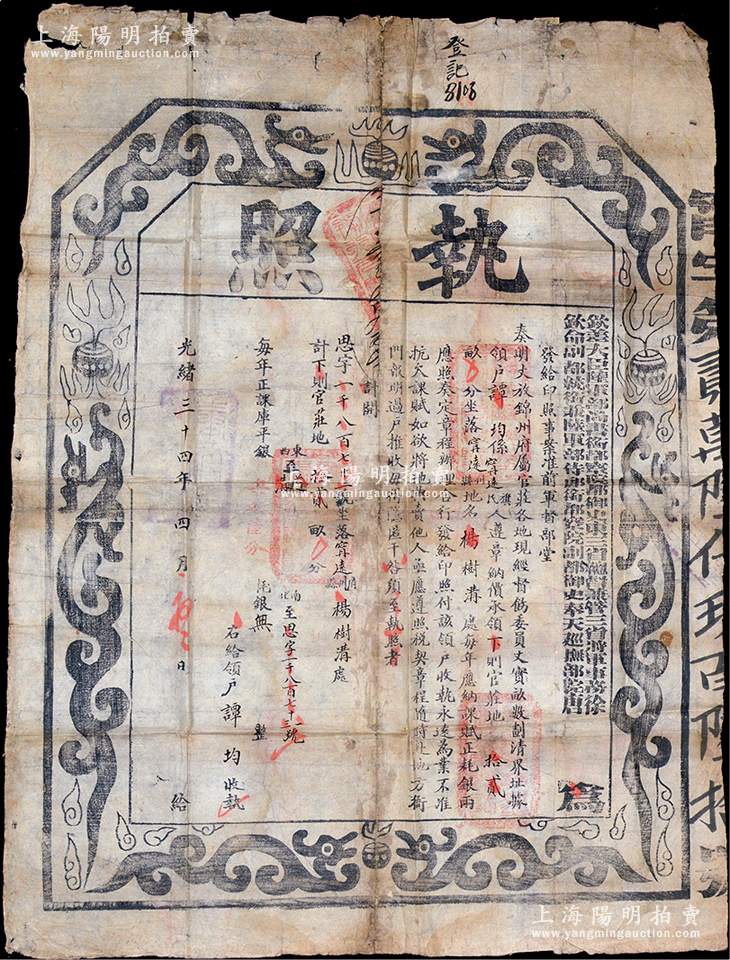 上海陽明拍賣
www.yangmingauction.com
登記
8108
執照
欽差大臣陸軍部尚書都察院都御史東三省總督兼管三省將軍事務徐
欽命副都統銜兼陸軍部侍郎銜都察院副都御史奉天巡撫部院唐
為
發給印照事案准前軍督部堂
奏明丈放錦州府屬官莊各地現經督飭委員丈實畝數劃清界址據
領戶譚均係寧遠州旗民人遵章納價承領下則官莊地拾貳
畝分坐落寧遠州縣地名楊樹溝處每年應納課賦正耗銀兩
應照奏定章程辦理合行發給印照付該領戶收執永遠為業不准
抗欠課賦如欲將地典賣他人亟應遵照稅契章程隨時赴地方衙
門報明過戶推收毋得隱匿干咎須至執照者
計開
思字一千八百七十號坐落寧遠州縣楊樹溝處
計下則官莊地拾貳畝分
東西至
南北至思字一千八百七十號
每年正課庫平銀
耗銀無
整
右給領戶譚均收執
光緒三十四年四月日
給
貳萬陸仟玖百陸拾號
上海陽明拍賣
www.yangmingauction.com
上海陽明拍賣
www.yangmingauction.com